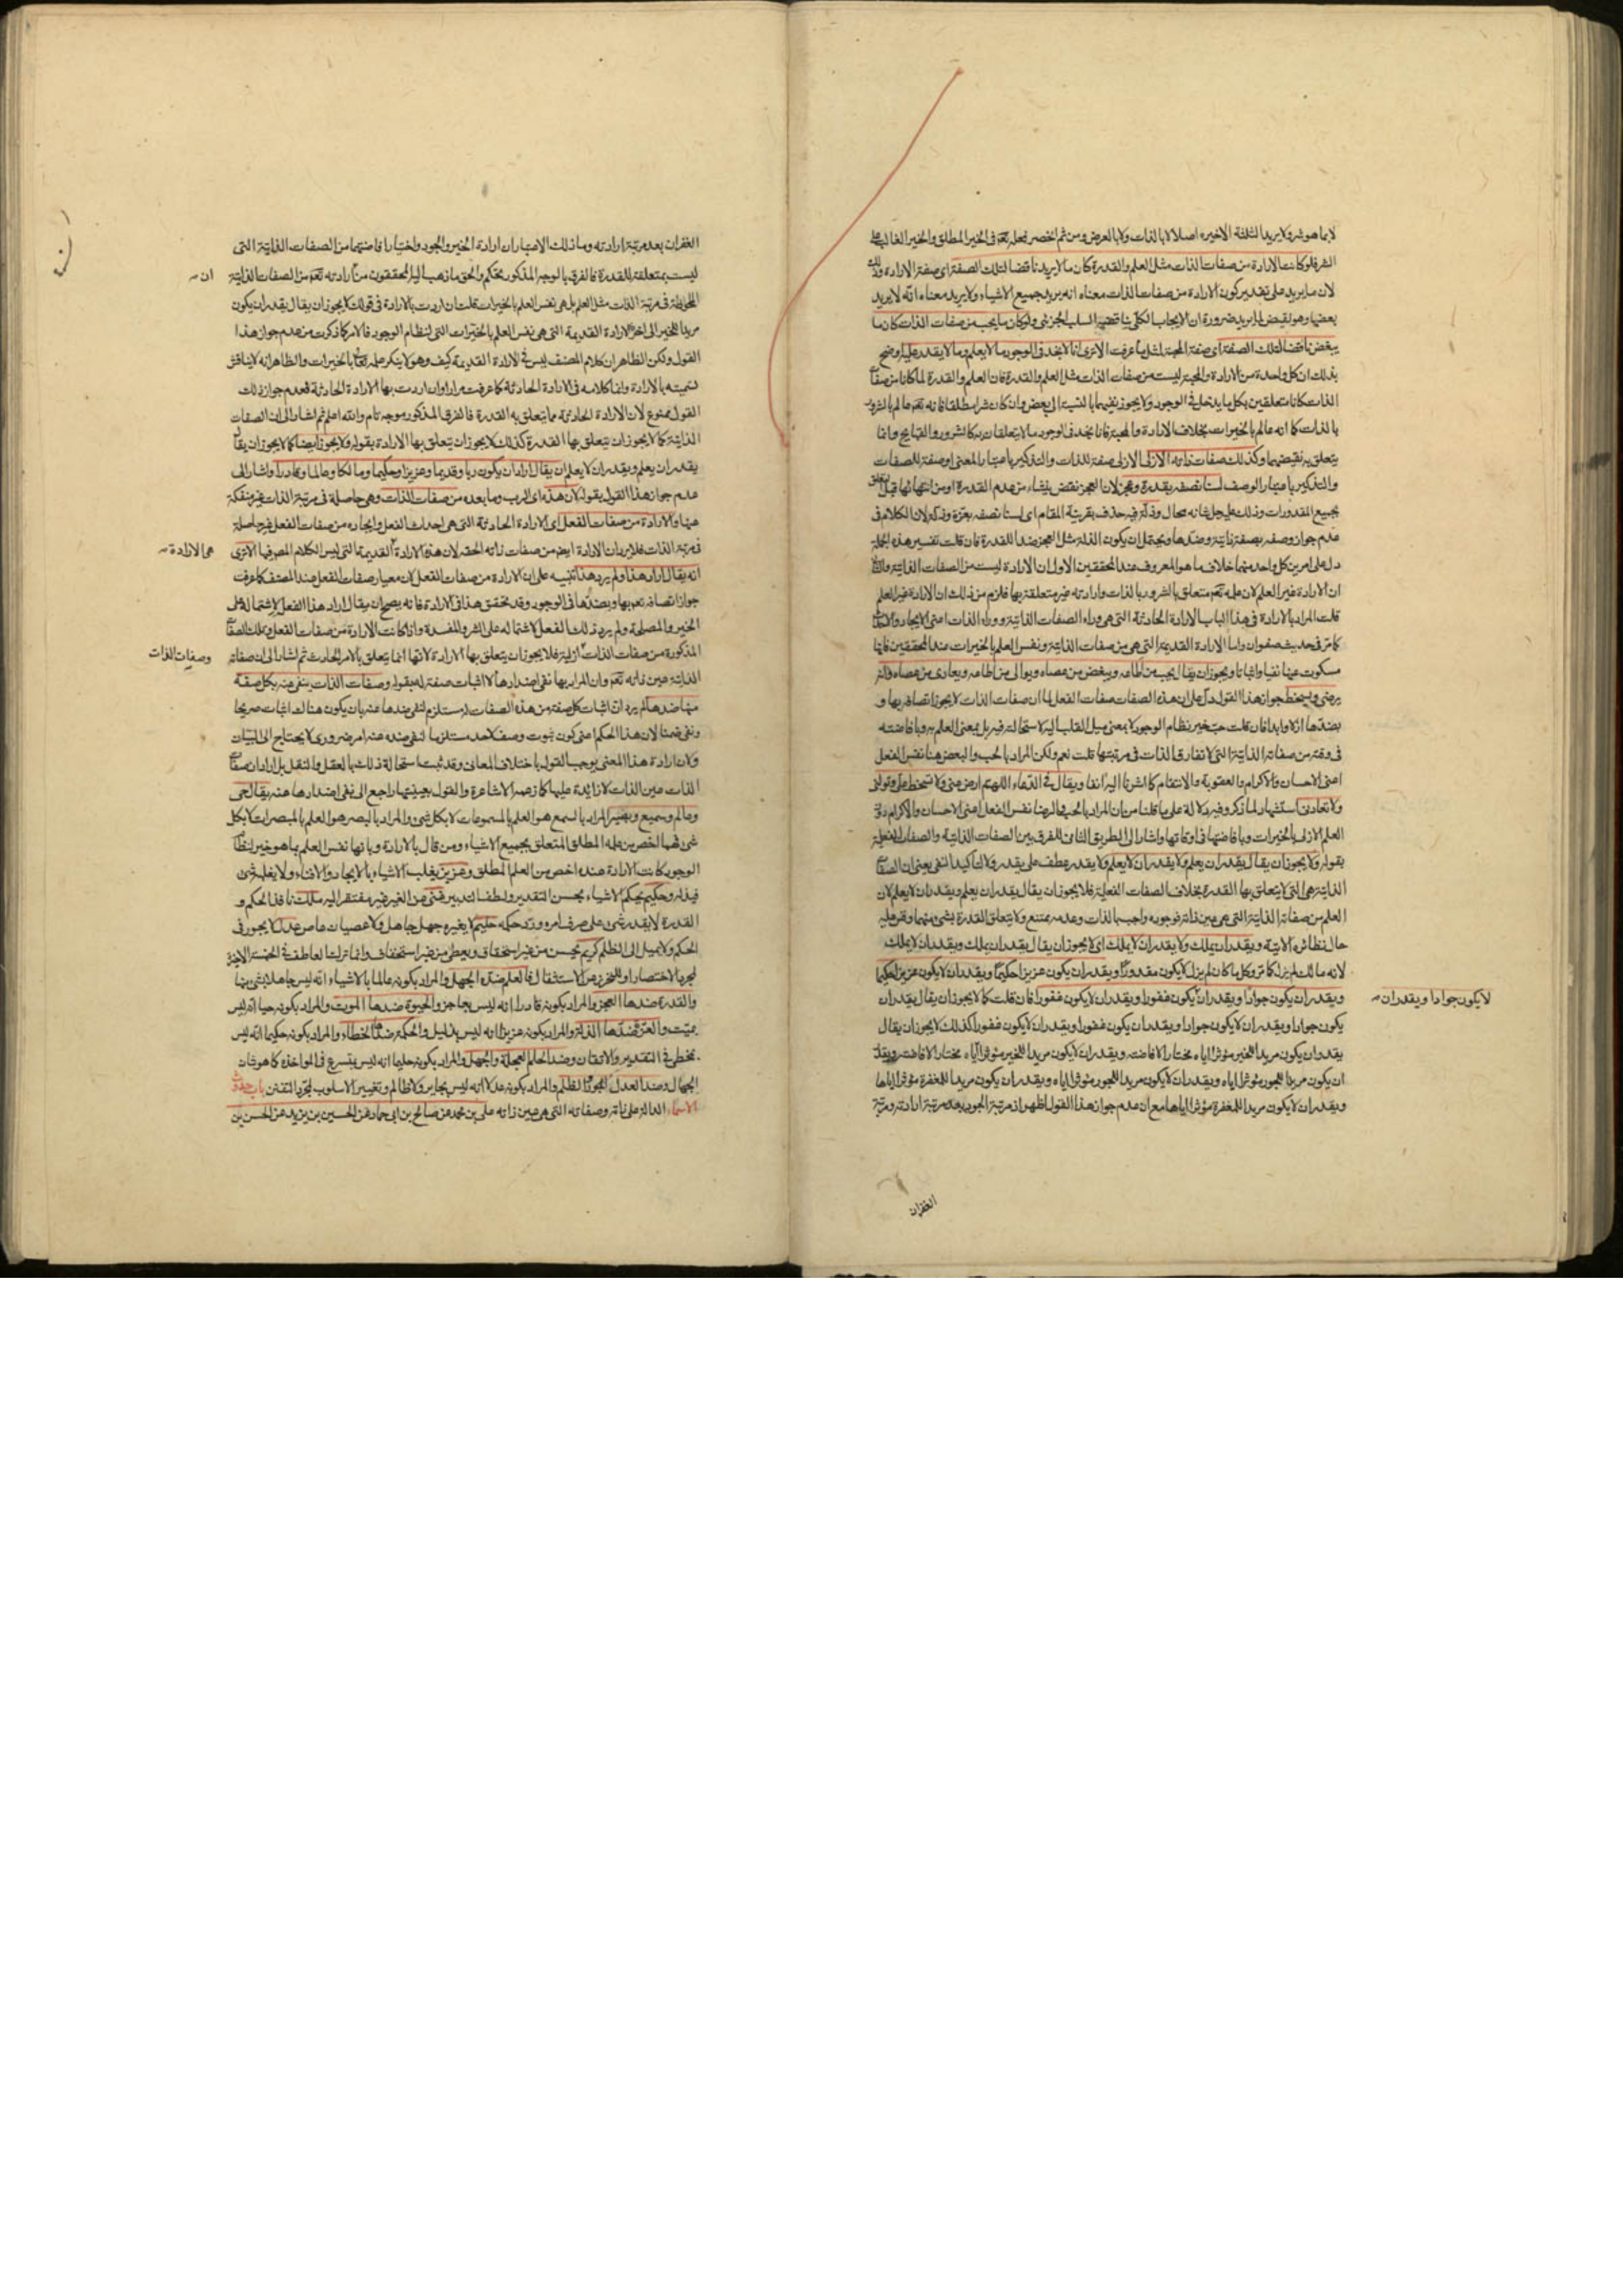 لابما هو شر ولا يريد الثلثة الاخيرة اصلا لا بالذات ولا بالعرض ومن ثم انحصر فعله تعم فى الخير المطلق والخير الغالب على
الشر فلو كانت الارادة من صفات الذات مثل العلم والقدرة كان ما لا يريد ناقضا لتلك الصفة اى صفة الارادة وذلك
لان ما يريد على تقدير كون الارادة من صفات الذات معناه انه يريد جميع الاشياء ولا يريد معناه انه لا يريد
بعضها وهو نقيض لما يريد ضرورة ان الايجاب الكلى يناقضه السلب الجزئى ولو كان ما يحب من صفات الذات كان ما
يبغض ناقضا لتلك الصفة اى صفة المحبة لمثل ما عرفت الا ترى انا لا نجد فى الوجود ما لا يعلم وما لا يقدر عليه وضح
بذلك ان كل واحدة من الارادة والمحبة ليست من صفات الذات مثل العلم والقدرة فان العلم والقدرة لما كانا من صفات
الذات كانا متعلقين بكل ما يدخل فى الوجود ولا يجوز نفيهما بالنسبة الى بعض وان كان شرا مطلقا فانه تعم عالم بالشرور
بالذات كما انه عالم بالخيرات بخلاف الارادة والمحبة فانا نجد فى الوجود ما لا يتعلقان به كالشرور والقبايح وانما
يتعلق به نقيضهما وكذلك صفات ذاته الازلى الازلى صفة للذات والتذكير باعتبار المعنى او صفة للصفات
والتذكير باعتبار الوصف لسنا نصفه بقدرة وعجز لان العجز نقص ينشاء من عدم القدرة او من انتهائها قبل تعلق
بجميع المقدورات وذلك على جل شانه محال وذلة فيه حذف بقرينة المقام اى لسنا نصفه بعزة وذلة لان الكلام فى
عدم جواز وصفه بصفة ذاتية وضدها ويحتمل ان يكون الذلة مثل العجز ضدا للقدرة فان قلت تفسير هذه الجملة
دل على امرين كل واحد منهما خلاف ما هو المعروف عند المحققين الاول ان الارادة ليست من الصفات الذاتية والثانى
ان الارادة غير العلم لان علمه تعم متعلق بالشرور بالذات وارادته غير متعلقة بها فلزم من ذلك ان الارادة غير العلم
قلت المراد بالارادة فى هذا الباب الارادة الحادثة التى هى وراء الصفات الذاتية ووراء الذات اعنى الايجاد والاحداث
كما مر فى حديث صفوان واما الارادة القديمة التى هى من صفات الذاتية ونفس العلم بالخيرات عند المحققين فانها
مسكوت عنها نفيا واثباتا ويجوز ان يقال يحب من اطاعه ويبغض من عصاه ويوالى من اطاعه ويعادى من عصاه وانه
يرضى ويسخط جواز هذا القول دل على ان هذه الصفات صفات الفعل لما ان صفات الذات لا يجوز اتصافه بها و
بضدها ازلا وابدا فان قلت حبه خير نظام الوجود لا بمعنى ميل القلب اليه لاستحالته فيه بل بمعنى العلم به وبافاضته
فى وقته من صفاته الذاتية التى لا تفارق الذات فى مرتبتها قلت نعم ولكن المراد بالحب والبعض هنا نفس الفعل
اعنى الاحسان والاكرام والعقوبة والانتقام كما اشرنا اليه انفا ويقال فى الدعاء اللهم ارض عنى ولا تسخط على وتولنى
ولا تعادنى استشهاد لما ذكر وفيه دلالة على ما قلنا من ان المراد بالحب والرضا نفس الفعل اعنى الاحسان والاكرام دون
العلم الازلى بالخيرات وبافاضتها فى اوقاتها واشار الى الطريق الثانى للفرق بين الصفات الذاتية والصفات الفعلية
بقوله ولا يجوز ان يقال يقدر ان يعلم ولا يقدر ان لا يعلم ولا يقدر عطف على يقدر ولا لتاكيد النفى يعنى ان الصفات
الذاتية هى التى لا يتعلق بها القدرة بخلاف الصفات الفعلية فلا يجوز ان يقال يقدر ان يعلم ويقدر ان لا يعلم لان
العلم من صفاته الذاتية التى هى عين ذاته فوجوده واجب بالذات وعدمه ممتنع ولا يتعلق القدرة بشئ منهما وقس عليه
حال نظائره الاتية ويقدر ان يملك ولا يقدر ان لا يملك اى لا يجوز ان يقال يقدر ان يملك ويقدر ان لا يملك
لانه مالك لم يزل كما مر وكل ما كان لم يزل لا يكون مقدورا ويقدر ان يكون عزيزا حكيما ويقدر ان لا يكون عزيزا حكيما
ويقدر ان يكون جوادا ويقدر ان يكون غفورا ويقدر ان لا يكون غفورا فان قلت كما لا يجوز ان يقال يقدر ان
لا يكون جوادا ويقدر ان
يكون جوادا ويقدر ان لا يكون جوادا ويقدر ان يكون غفورا ويقدر ان لا يكون غفورا كذلك لا يجوز ان يقال
يقدر ان يكون مريدا للخير مؤثرا اياه مختارا لافاضته ويقدر ان لا يكون مريدا للخير مؤثرا اياه مختارا لافاضته ويقدر
ان يكون مريدا للجود مؤثرا اياه ويقدر ان لا يكون مريدا للجود مؤثرا اياه ويقدر ان يكون مريدا للمغفرة مؤثرا اياها
ويقدر ان لا يكون مريدا للمغفرة مؤثرا اياها مع ان عدم جواز هذا القول اظهر اذ مرتبة الجود بعد مرتبة ارادته ومرتبة
الغفران
الغفران بعد مرتبة ارادته وما ذلك الا باعتبار ان ارادة الخير والجود واختيار افاضتهما من الصفات الذاتية التى
ليست بمتعلقة للقدرة فالفرق بالوجه المذكور تحكم والحق ما ذهب اليه المحققون من ارادته تعم من الصفات الذاتية
ان
الملحوظة فى مرتبة الذات مثل العلم بل هى نفس العلم بالخيرات قلت ان اردت بالارادة فى قولك لا يجوز ان يقال يقدر ان يكون
مريدا للخير الى اخره الارادة القديمة التى هى نفس العلم بالخيرات التى لنظام الوجود فالامر كما ذكرت من عدم جواز هذا
القول ولكن الظاهر ان كلام المصنف ليس فى الارادة القديمة كيف وهو لا ينكر علمه تعالى بالخيرات والظاهر انه لا يناقش
تسميته بالارادة وانما كلامه فى الارادة الحادثة كما عرفت مرارا وان اردت بها الارادة الحادثة فعدم جواز ذلك
القول ممنوع لان الارادة الحادثة مما يتعلق به القدرة فالفرق المذكور موجه تام والله اعلم ثم اشار الى ان الصفات
الذاتية كما لا يجوز ان يتعلق بها القدرة كذلك لا يجوز ان يتعلق بها الارادة بقوله ولا يجوز ايضا كما لا يجوز ان يقال
يقدر ان يعلم ويقدر ان لا يعلم ان يقال اراد ان يكون ربا وقديما وعزيزا وحكيما ومالكا وعالما وقادرا واشار الى
عدم جواز هذا القول بقوله لان هذه اى الرب وما بعده من صفات الذات وهى حاصلة فى مرتبة الذات غير منفكة
عنها والارادة من صفات الفعل اى الارادة الحادثة التى هى احداث الفعل وايجاده من صفات الفعل غير حاصلة
فى مرتبة الذات فلا يرد ان الارادة ايضا من صفات ذاته الحقة لان هذه الارادة القديمة التى ليس الكلام المصر فيها الا ترى
هى الارادة
انه يقال اراد هذا ولم يرد هذا تنبيه على ان الارادة من صفات الفعل لان معيار صفات الفعل عند المصنف كما عرفت
جواز اتصافه تعم بها وبضدها فى الوجود وقد تحقق هذا فى الارادة فانه يصح ان يقال اراد هذا الفعل لاشتماله على
الخير والمصلحة ولم يرد ذلك الفعل لاشتماله على الشر والمفسدة واذا كانت الارادة من صفات الفعل وتلك الصفات
المذكورة من صفات الذات ازلية فلا يجوز ان يتعلق بها الارادة لانها انما يتعلق بالامر الحادث ثم اشار الى ان صفاته
وصفات الذات
الذاتية عين ذاته تعم وان المراد بها نفى اضدادها لا اثبات صفة له بقوله وصفات الذات ينفى عنه بكل صفة
منها ضدها لم يرد ان اثبات كل صفة من هذه الصفات له مستلزم لنفى ضدها عنه بان يكون هناك اثبات صريحا
ونفى ضمنا لان هذا الحكم اعنى كون ثبوت وصف لاحد مستلزما لنفى ضده عنه امر ضرورى لا يحتاج الى البيان
ولان ارادة هذا المعنى يوجب القول باختلاف المعانى وقد ثبت استحالة ذلك بالعقل والنقل بل اراد ان صفات
الذات عين الذات لا زايدة عليها كما زعمه الاشاعرة والقول بعينيتها راجع الى نفى اضدادها عنه يقال حى
وعالم وسميع وبصير المراد بالسمع هو العلم بالمسموعات لا بكل شئ والمراد بالبصر هو العلم بالمبصرات لا بكل
شئ فهما اخص من علمه المطلق المتعلق بجميع الاشياء ومن قال بالارادة وبانها نفس العلم بما هو خير لنظام
الوجود كانت الارادة عنده اخص من العلم المطلق وعزيز يغلب الاشياء بالايجاد والافناء ولا يغلبه شئ
فيذله وحكيم يحكم الاشياء بحسن التقدير ولطف التدبير غنى عن الغير غير مفتقر اليه ملك نافذ الحكم و
القدرة لا يقدر شئ على صرف امره ورد حكمه حليم لا يغيره جهل جاهل ولا عصيان عاص عدل لا يجور فى
الحكم ولا يميل الى الظلم كريم يحسن من غير استحقاق ويعطى من غير استخفاف وانما ترك العاطف فى الخمسة الاخيرة
لمجرد الاختصار او للتحرز عن الاستثقال فالعلم ضده الجهل والمراد بكونه عالما بالاشياء انه ليس جاهلا بشئ منها
والقدرة ضدها العجز والمراد بكونه قادرا انه ليس بعاجز والحيوة ضدها الموت والمراد بكونه حيا انه ليس
بميت والعزة ضدها الذلة والمراد بكونه عزيزا انه ليس بذليل والحكمة ضدها الخطاء والمراد بكونه حكيما انه ليس
بمخطئ فى التقدير والاتقان وضد الحلم العجلة والجهل والمراد بكونه حليما انه ليس يتسرع فى المواخذة كما هو شان
الجهال وضد العدل الجور والظلم والمراد بكونه عدلا انه ليس بجاير ولا ظالم وتغيير الاسلوب لمجرد التفنن باب حدوث
الاسماء الدالة على ذاته وصفاته التى هى عين ذاته على بن محمد عن صالح بن ابى حماد عن الحسين بن يزيد عن الحسن بن